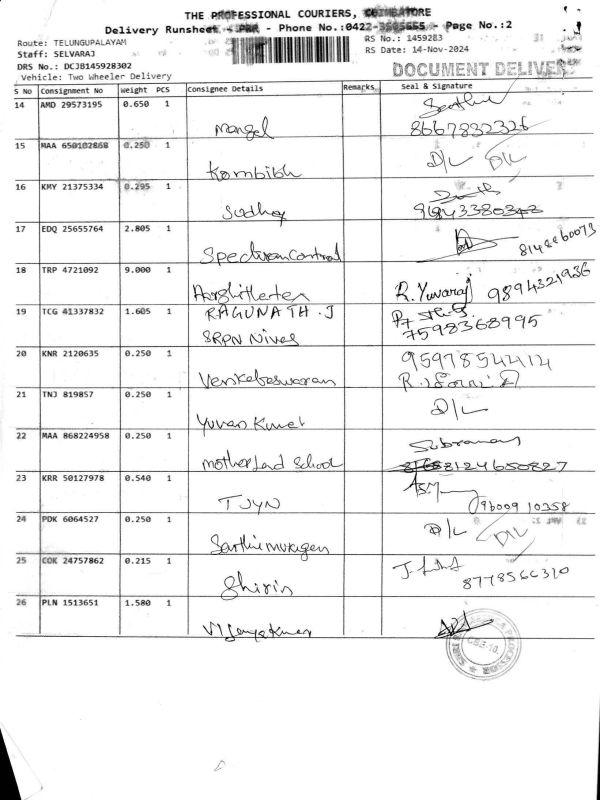 THE PROFESSIONAL COURIERS, COIMBATORE
Delivery Runsheet - Phone No.:0422- Page No.:2
Route: TELUNGUPALAYAM
RS No.: 1459283
Staff: SELVARAJ
RS Date: 14-Nov-2024
DRS No.: DCJB145928302
Vehicle: Two Wheeler Delivery
DOCUMENT DELIVE
S No Consignment No Weight PCS Consignee Details Remarks Seal & Signature
14 AMD 29573195 0.650 1
Mangal 8667832326
15 MAA 650102868 0.250 1 D/L D/L
16 KMY 21375334 0.295 1
Sudha
17 EDQ 25655764 2.805 1
Spectrum Control
18 TRP 4721092 9.000 1
R. Yuvaraj 9894321936
19 TCG 41337832 1.605 1 RAGUNATH . J
SRPN Nivas 7598368995
20 KNR 2120635 0.250 1 9597854414
Venkateswaran
21 TNJ 819857 0.250 1 D/L
Yuvan Kumar
22 MAA 868224958 0.250 1
Motherland School 8124650827
23 KRR 50127978 0.540 1
TJYN
24 PDK 6064527 0.250 1 D/L D/L
Sakthi murugan
25 COK 24757862 0.215 1
Shirin 8778566310
26 PLN 1513651 1.580 1
Vijayakumar